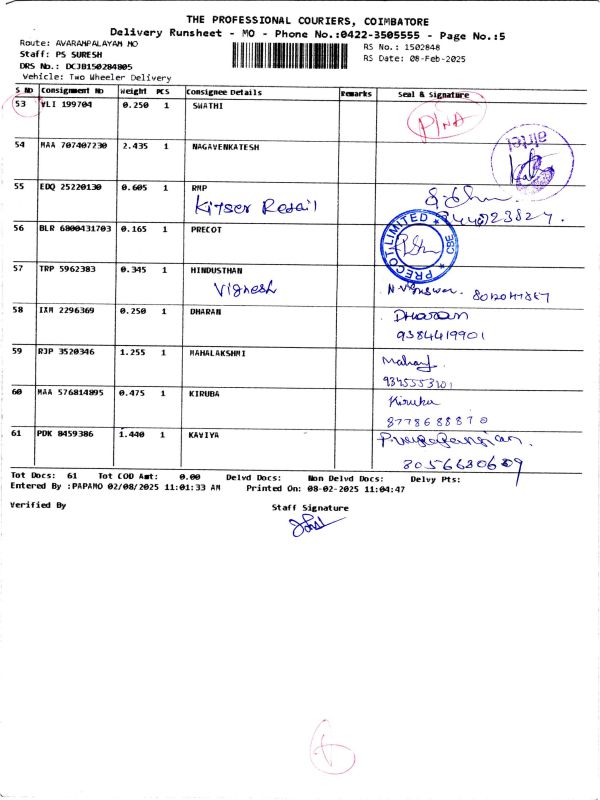 THE PROFESSIONAL COURIERS, COIMBATORE
Delivery Runsheet - MO - Phone No.:0422-3505555 - Page No.:5
Route: AVARAMPALAYAM MO
RS No.: 1502848
Staff: PS SURESH
RS Date: 08-Feb-2025
DRS No.: DCJB150284805
Vehicle: Two Wheeler Delivery
S NO Consignment No Weight PCS Consignee Details Remarks Seal & Signature
53 VLI 199704 0.250 1 SWATHI
54 MAA 707407230 2.435 1 NAGAVENKATESH
airtel
55 EDQ 25220130 0.605 1 RMP
Kitser Retail
56 BLR 6800431703 0.165 1 PRECOT
PRECOT LIMITED CSE
57 TRP 5962383 0.345 1 HINDUSTHAN
Vignesh
58 IXM 2296369 0.250 1 DHARAN Dharan
9384419901
59 RJP 3520346 1.255 1 MAHALAKSHMI
60 MAA 576814895 0.475 1 KIRUBA Kiruba
8778688870
61 PDK 8459386 1.440 1 KAVIYA
Tot Docs: 61 Tot COD Amt: 0.00 Delvd Docs: Non Delvd Docs: Delvy Pts:
Entered By :PAPAMO 02/08/2025 11:01:33 AM Printed On: 08-02-2025 11:04:47
Verified By Staff Signature